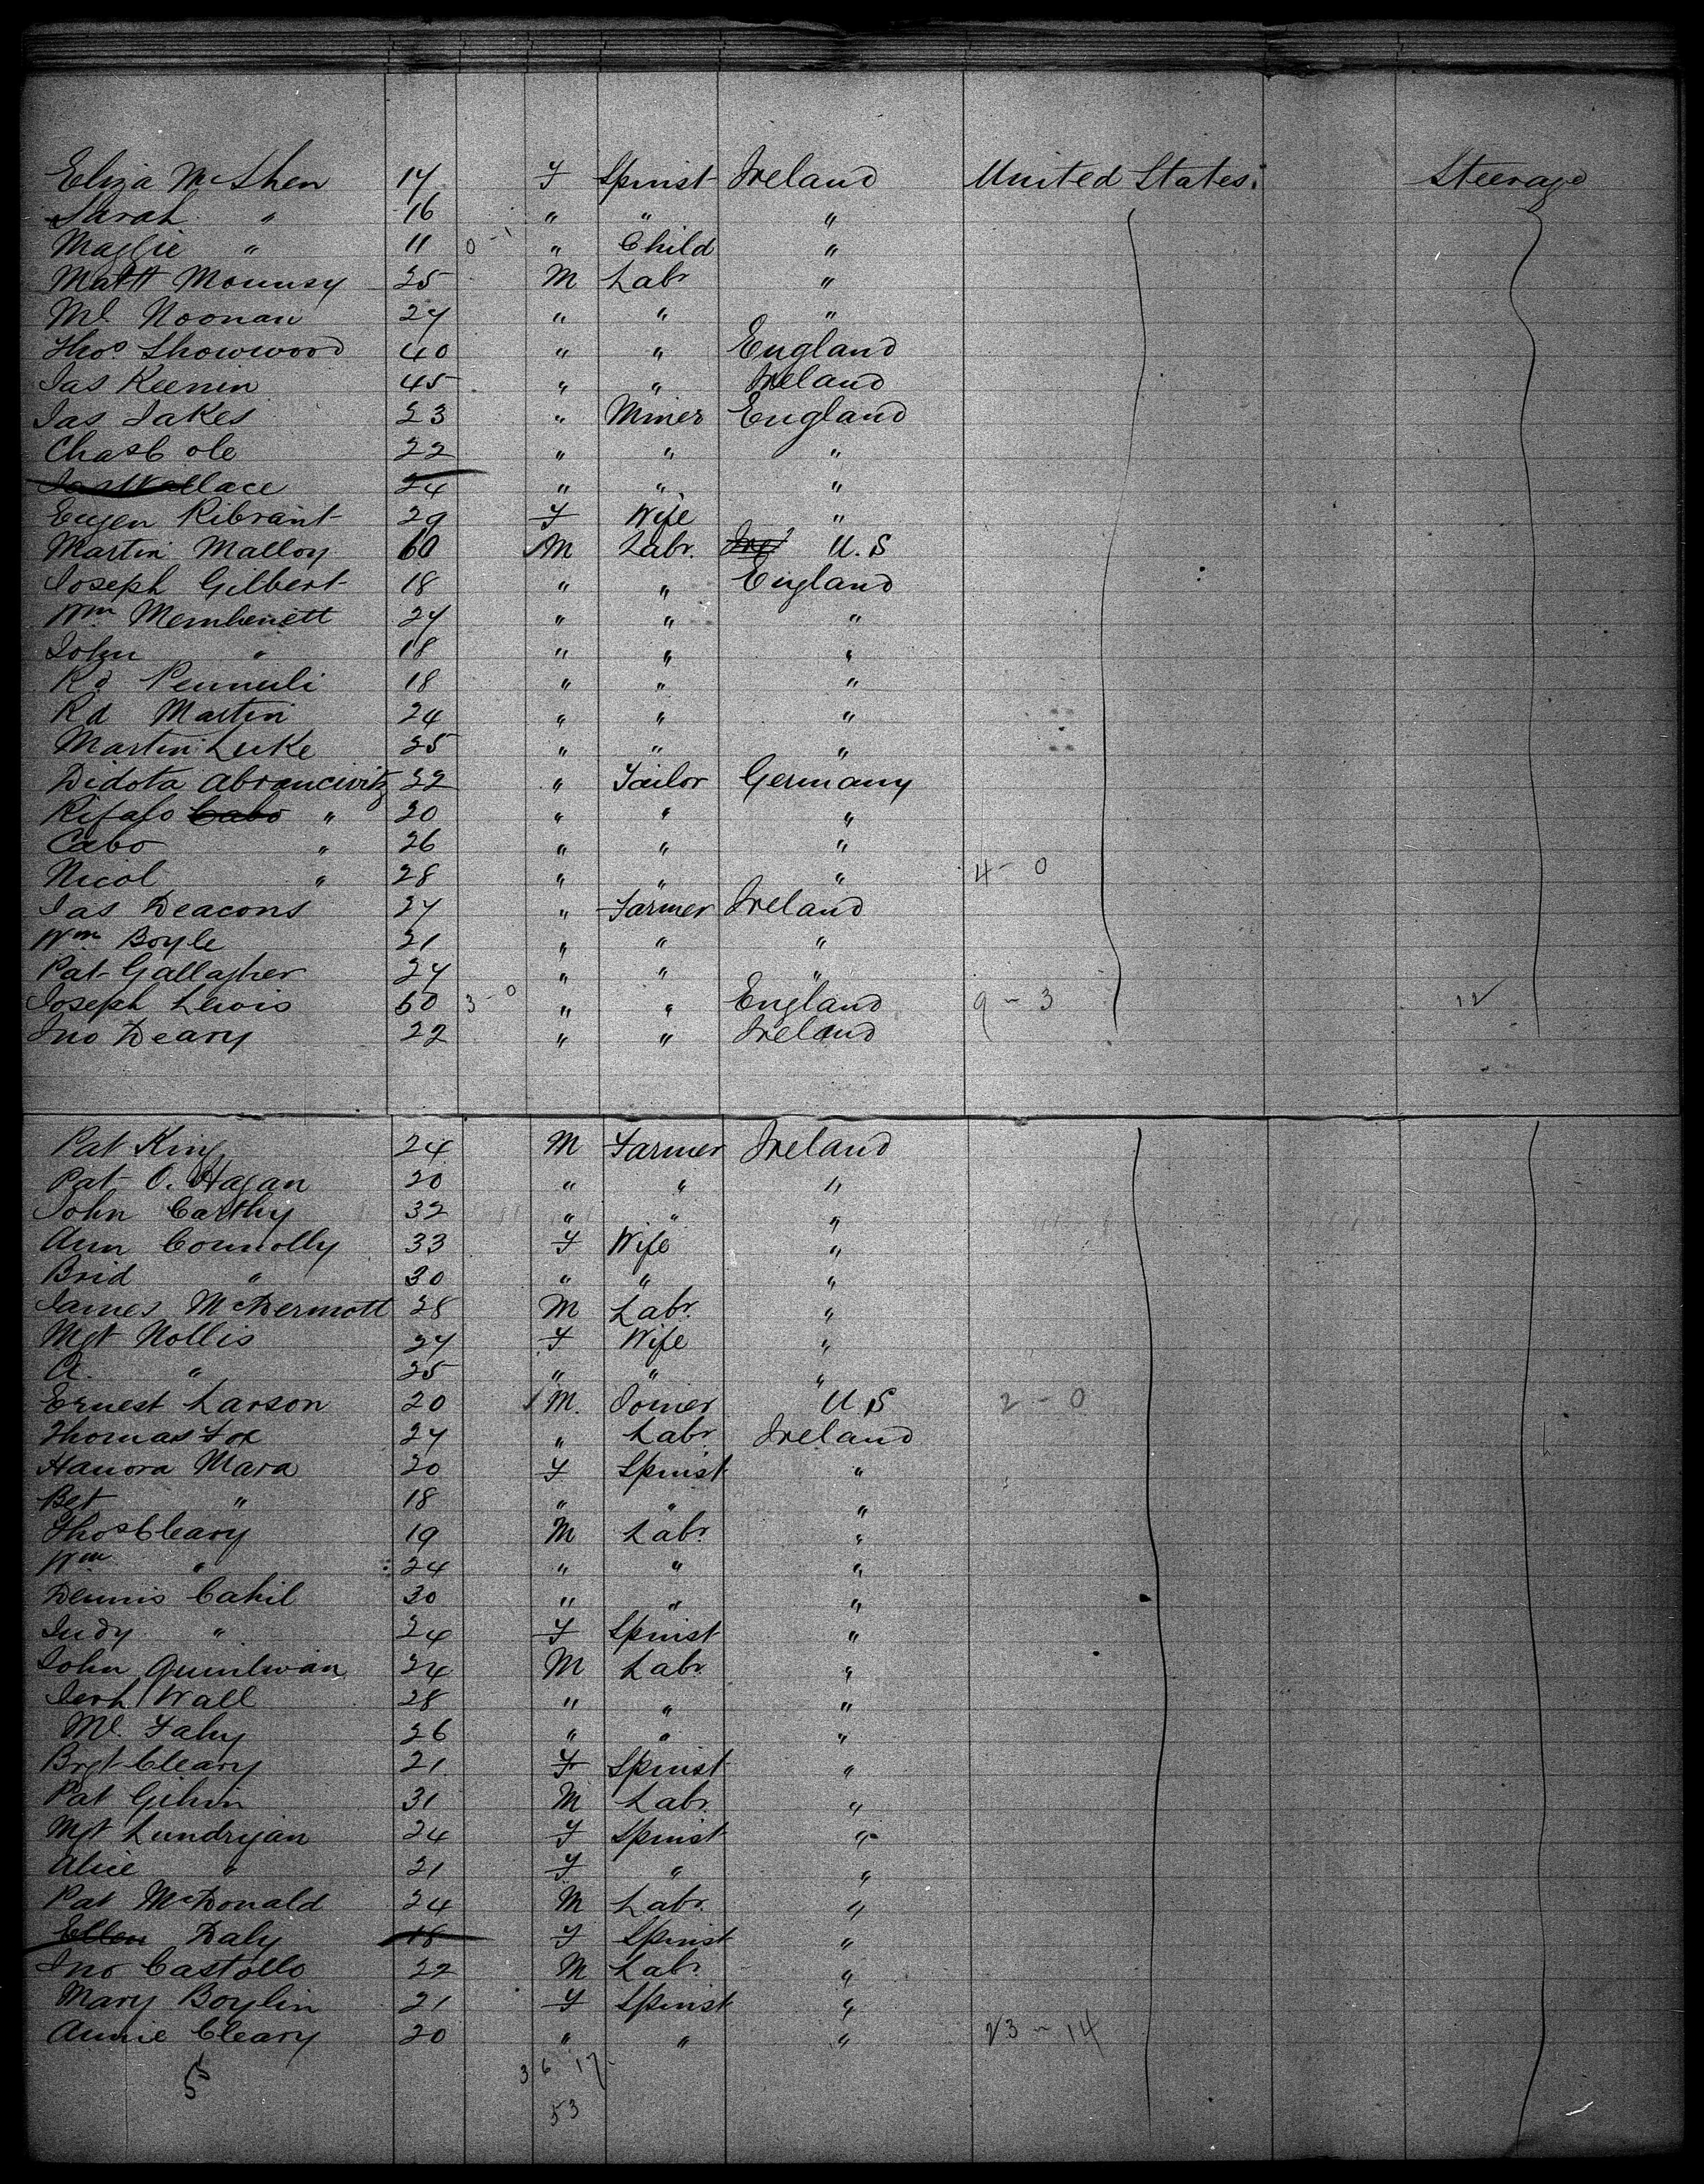 Eliza McShen 17 F Spinst Ireland United States. Steerage
Sarah " 16 " " "
Maggie " 11 0-1 " Child "
Matt Mounsy 25 M Labr "
Ml. Noonan 27 " " "
Thos Showwood 40 " " England
Jas Keenin 45 " " Ireland
Jas Jakes 23 " Miner England
Chas Cole 22 " " "
Jas Wallace 24 " " "
Eugen Ribrant 29 F Wife "
Martin Malloy 60 M Labr. Irel U.S
Joseph Gilbert 18 " " England
Wm Membenett 27 " " "
John " 18 " " "
Rd Penneuli 18 " " "
Rd Martin 24 " " "
Martin Luke 25 " " "
Didota Abrancivitz 22 " Tailor Germany
Rifafo Cabo " 20 " " "
Cabo " 26 " " "
Nicol " 28 " " " 4-0
Jas Deacons 27 " Farmer Ireland
Wm Boyle 21 " " "
Pat Gallagher 27 " " "
Joseph Lewis 60 3-0 " " England 9-3 12
Jno Deary 22 " " Ireland
Pat King 24 M Farmer Ireland
Pat O. Hagan 20 " " "
John Carthy 32 " " "
Ann Connolly 33 F Wife "
Brid " 30 " " "
James McDermott 28 M Labr. "
Mgt Nollis 27 F Wife "
A. " 25 " " "
Ernest Larson 20 M. Joiner U.S 2-0
Thomas Fox 27 " Labr Ireland
Hanora Mara 20 F Spinst "
Bet " 18 " " "
Thos Cleary 19 M Labr. "
Wm " 24 " " "
Dennis Cahil 30 " " "
Judy " 24 F Spinst "
John Quinlivan 24 M Labr "
Jerh Wall 28 " " "
Ml. Fahy 26 " " "
Brgt Cleary 21 F Spinst "
Pat Gilvin 31 M Labr. "
Mgt Lundrigan 24 F Spinst "
Alice " 21 F " "
Pat McDonald 24 M Labr. "
Ellen Daly 18 F Spinst "
Jno Castollo 22 M Labr. "
Mary Boylin 21 F Spinst "
Annie Cleary 20 " " " 23-14
5 36 17
53